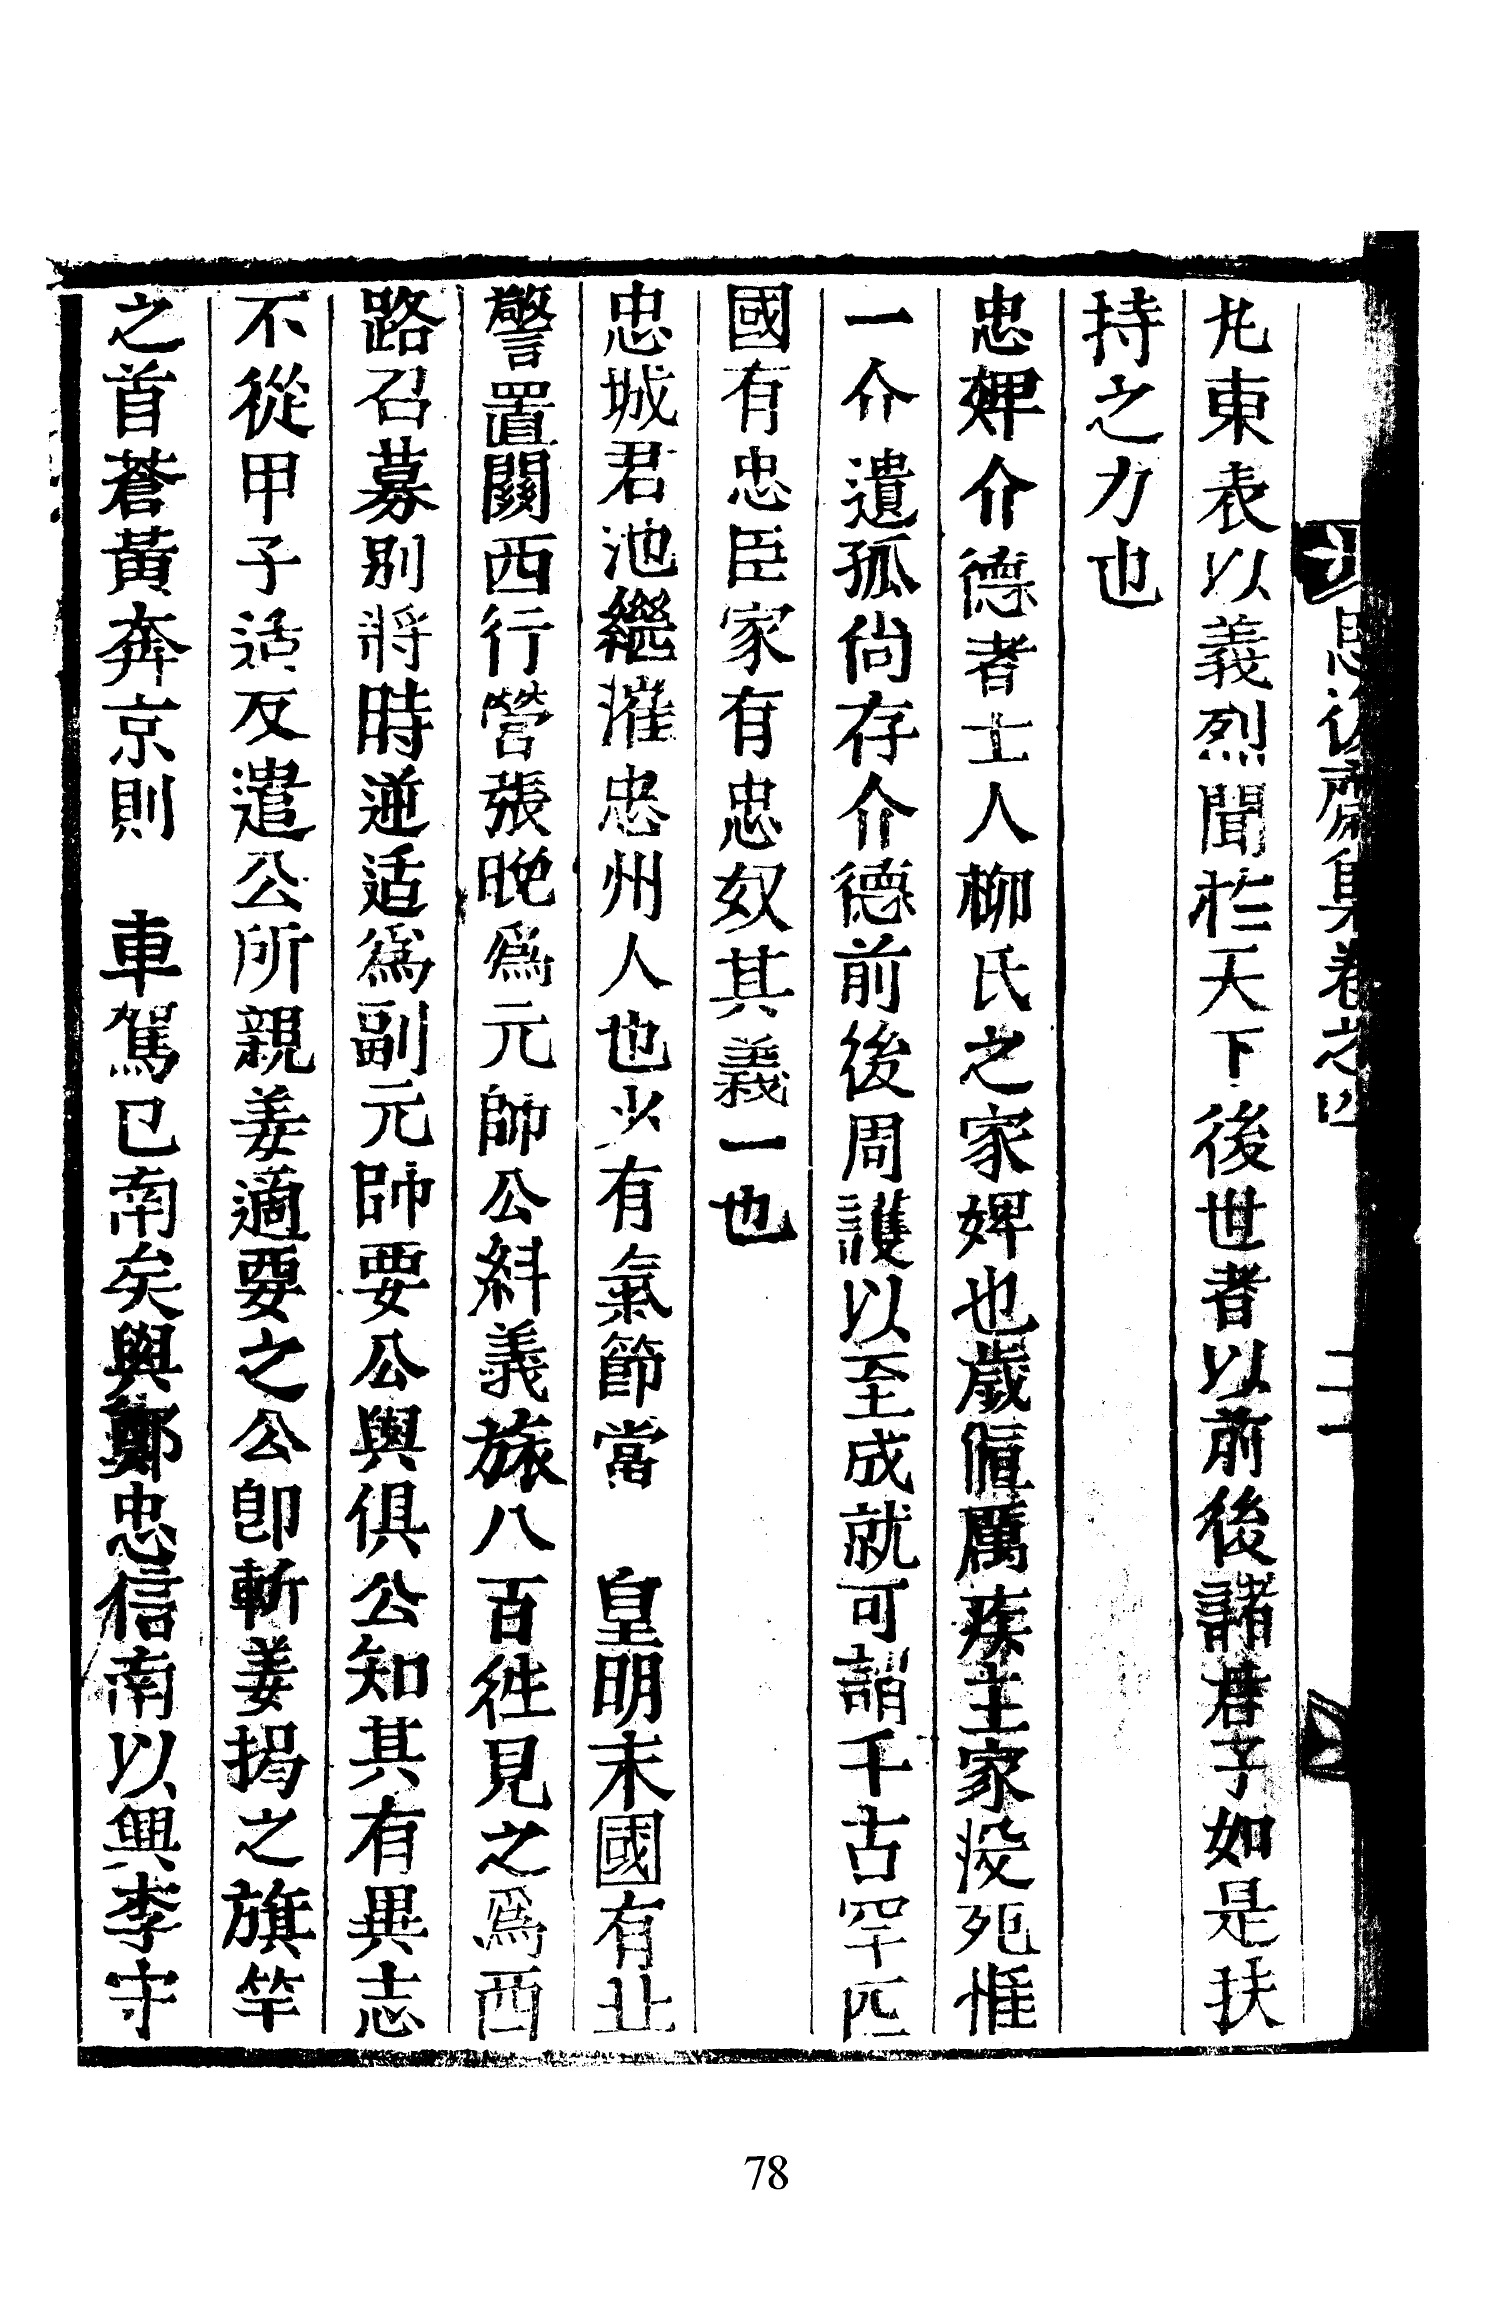 思後齋集卷之四 二十
凡東表以義烈聞於天下後世者以前後諸君子如是扶
持之力也
忠婢介德者士人柳氏之家婢也歲値厲疾主家沒死惟
一介遺孤尙存介德前後周護以至成就可謂千古罕匹
國有忠臣家有忠奴其義一也
忠城君池繼漼忠州人也少有氣節當　皇明末國有北
警置關西行營張晩爲元帥公糾義旅八百徃見之爲西
路召募別將時逆适爲副元帥要公與俱公知其有異志
不從甲子适反遣公所親姜適要之公卽斬姜揭之旗竿
之首蒼黃奔京則　車駕已南矣與鄭忠信南以興李守
78